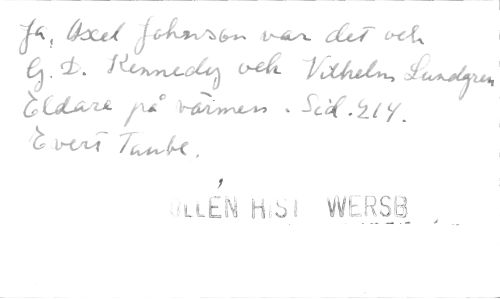 Ja, Axel Johnson var det och
G. D. Kennedy och Vilhelm Lundgren
Eldare på värmen. Sid. 214.
Evert Taube.
ULLÉN HIST WERSB